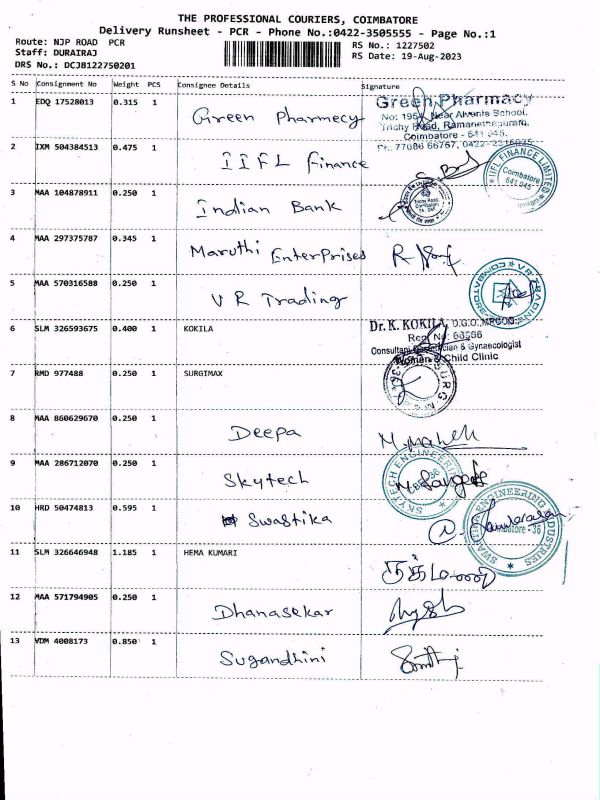 THE PROFESSIONAL COURIERS, COIMBATORE
Delivery Runsheet - PCR - Phone No.:0422-3505555 - Page No.:1
Route: NJP ROAD PCR
RS No.: 1227502
Staff: DURAIRAJ
RS Date: 19-Aug-2023
DRS No.: DCJ8122750201
S No Consignment No Weight PCS Consignee Details Signature
1 EDQ 17528013 0.315 1 Green Pharmecy
Green Pharmacy
Near Alvenia School,
Trichy Road, Ramanathapuram,
Coimbatore - 641 045.
2 IXM 504384513 0.475 1 IIFL finance
IIFL FINANCE LIMITED
Coimbatore
641 045
3 MAA 104878911 0.250 1 Indian Bank
4 MAA 297375787 0.345 1 Maruthi Enterprises
5 MAA 570316588 0.250 1 VR Trading
VR TRADING COIMBATORE
6 SLM 326593675 0.400 1 KOKILA
Dr. K. KOKILA, D.G.O.,
Consultant & Gynaecologist
Women & Child Clinic
7 RMD 977488 0.250 1 SURGIMAX
8 MAA 860629670 0.250 1 Deepa M. Mahesh
9 MAA 286712070 0.250 1 Skytech
SKYTECH ENGINEERING
10 HRD 50474813 0.595 1 Swastika
ENGINEERING INDUSTRIES
11 SLM 326646948 1.185 1 HEMA KUMARI
12 MAA 571794905 0.250 1 Dhanasekar
13 VDM 4008173 0.850 1 Sugandhini